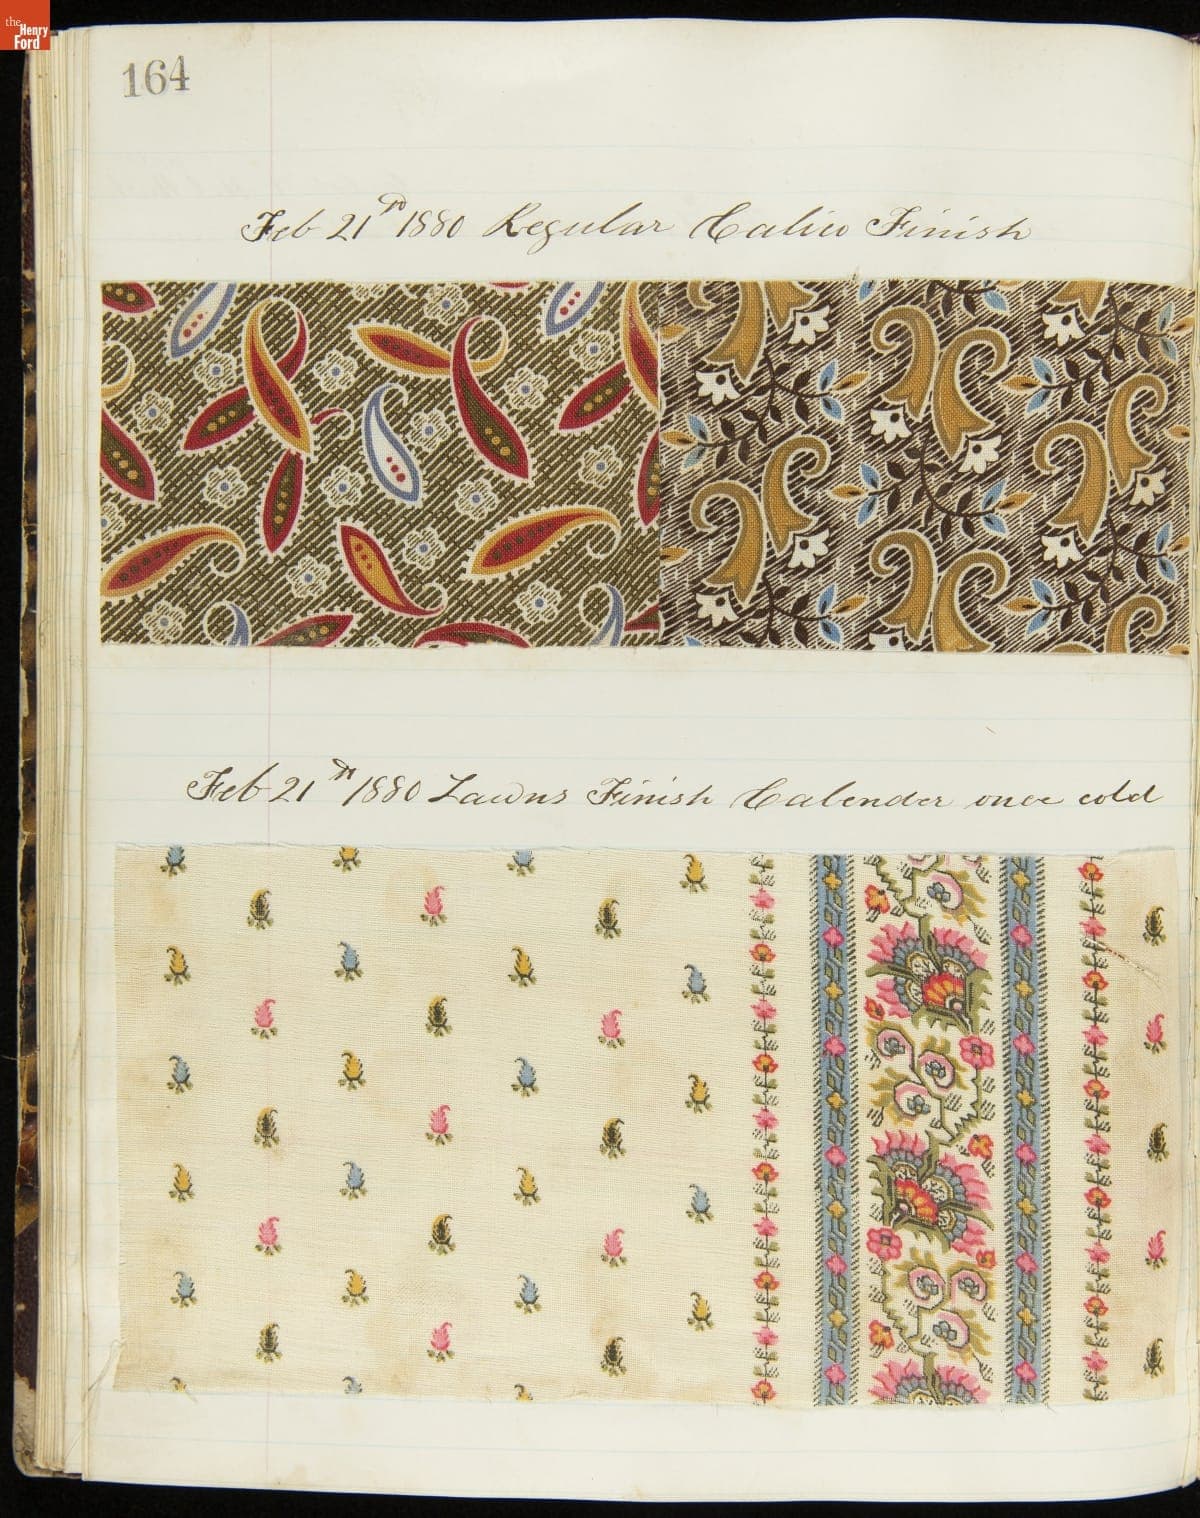 the
Henry
Ford
164
Feb 21st 1880 Regular Calico Finish
Feb 21st 1880 Lawns Finish Calender once cold